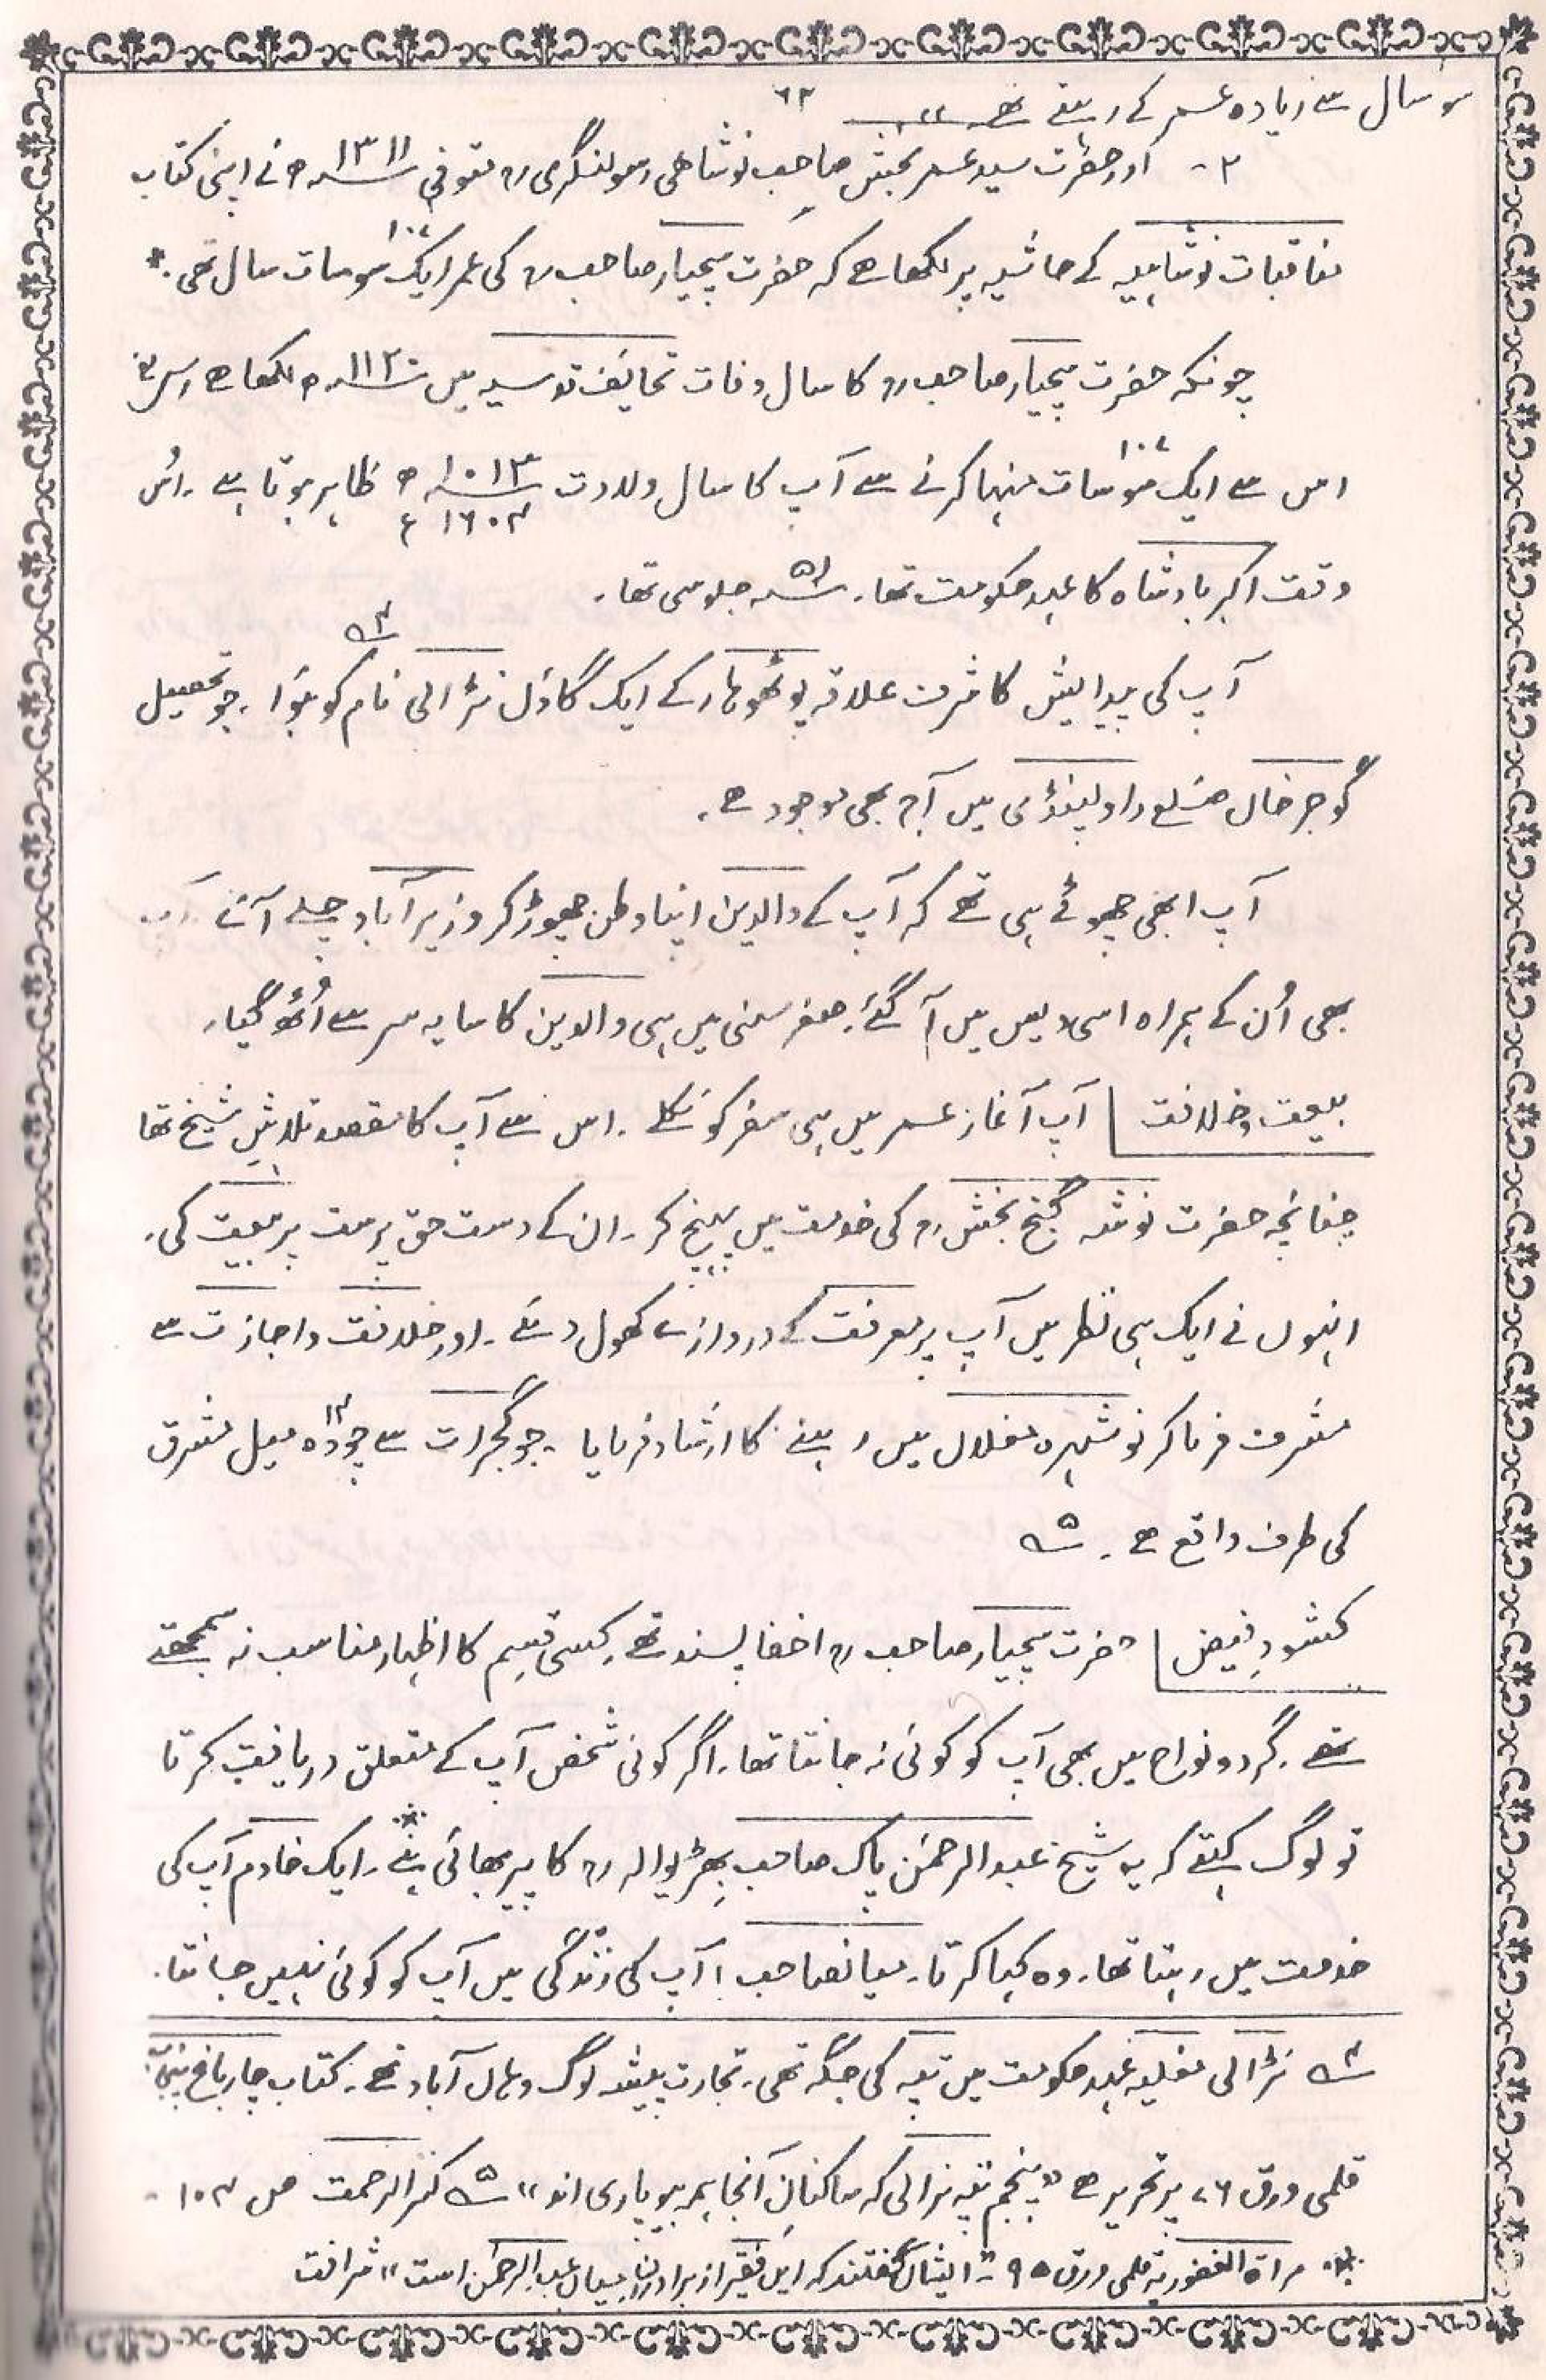 سو سال سے زیادہ عمر کے رہتے تھے
۶۳
۳۔ اور حضرت سید عمر بخش صاحب نوشاھی رسولنگری رح متوفی ۱۳۱۱ھ نے اپنی کتاب
مناقبات نوشاہیہ کے حاشیہ پر لکھا ھے کہ حضرت پیچیار صاحب رح کی عمر ایک سو سات ۱۰۷ سال تھی۔ *
چونکہ حضرت پیچیار صاحب رح کا سال وفات تحائف قدسیہ میں ۱۱۲۰ھ لکھا ھے
اس سے ایک سو سات ۱۰۷ منہا کرنے سے آپ کا سال ولادت ۱۰۱۳ھ ۱۶۰۴ء ظاہر ہوتا ہے۔ اُس
وقت اکبر بادشاہ کا عہد حکومت تھا۔ ۵۱ سنہ جلوسی تھا۔
آپ کی پیدایش کا شرف علاقہ پوٹھوہار کے ایک گاؤں نڑالی نام کو ہوُا۔ ۴؎ جو تحصیل
گوجر خاں ضلع راولپنڈی میں آج بھی موجود ھے۔
آپ ابھی چھوٹے ہی تھے کہ آپ کے والدین اپنا وطن چھوڑ کر وزیر آباد چلے آئے آپ
بھی اُن کے ہمراہ اسی دیس میں آ گئے۔ صغر سنی میں ہی والدین کا سایہ سر سے اُٹھ گیا۔
بیعت و خلافت | آپ آغاز عمر میں ہی سفر کو نکلے۔ اس سے آپ کا مقصد تلاشِ شیخ تھا
چنانچہ حضرت نوشہ گنج بخش رح کی خدمت میں پہنچ کر۔ ان کے دست حق پرست پر بیعت کی۔
انہوں نے ایک ہی نظر میں آپ پر معرفت کے دروازے کھول دئے۔ اور خلافت و اجازت سے
مشرف فرما کر نوشہرہ مغلاں میں رہنے کا ارشاد فرمایا۔ جو گجرات سے چودہ ۱۴ میل مشرق
کی طرف واقع ھے۔ ۵؎
کشودِ فیض | حضرت پیچیار صاحب رح اخفا پسند تھے۔ کسی قسم کا اظہار مناسب نہ سمجھتے
تھے۔ گرد و نواح میں بھی آپ کو کوئی نہ جانتا تھا۔ اگر کوئی شخص آپ کے متعلق دریافت کرتا
تو لوگ کہتے کہ یہ شیخ عبد الرحمٰن پاک صاحب بھڑیوالہ رح کا پیر بھائی ہے۔ ایک خادم آپ کی
خدمت میں رہتا تھا۔ وہ کہا کرتا۔ میانصاحب! آپ کی زندگی میں آپ کو کوئی نہیں جانتا۔
۴؎ نڑالی مغلیہ عہد حکومت میں تپہ کی جگہ تھی۔ تجارت پیشہ لوگ وہاں آباد تھے۔ کتاب چار باغ پنجاب
قلمی ورق ۷۶ پر تحریر ھے "پنجم تپہ نرالی کہ ساکنانِ آنجا ہمہ بیوپاری اند" ۵؎ کنز الرحمت ص ۱۰۴۔
* مراۃ الغفوریہ قلمی ورق ۹۵۔ "ایشاں گفتند کہ این فقیر از برادران میاں عبد الرحمٰن است" شرافت